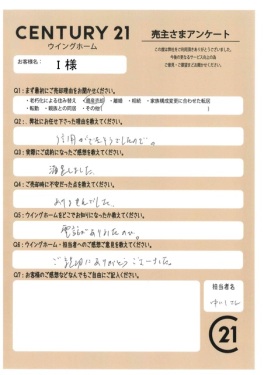 CENTURY 21
ウイングホーム
売主さまアンケート
お客様名:
I 様
Q1:まず最初にご売却理由をお聞かせください。
・老朽化による住み替え ・資産売却 ・離婚 ・相続 ・家族構成変更に合わせた転居
・転勤 ・親族との同居 ・その他(
Q2:、弊社にお任せ下さった理由を教えてください。
信用ができそうでしたので。
Q3:実際にご成約になったご感想を教えてください。
満足しました。
Q4:ご売却時に不安だった点を教えてください。
ありませんでした。
Q5:ウイングホームをどこでお知りになったか教えてください。
電話がありましたので。
Q6:ウイングホーム・担当者へのご感想ご意見を教えてください。
ご親切にありがとうございました。
Q7:お客様のご感想などなんでもご自由にご記入ください。
担当者名
C21